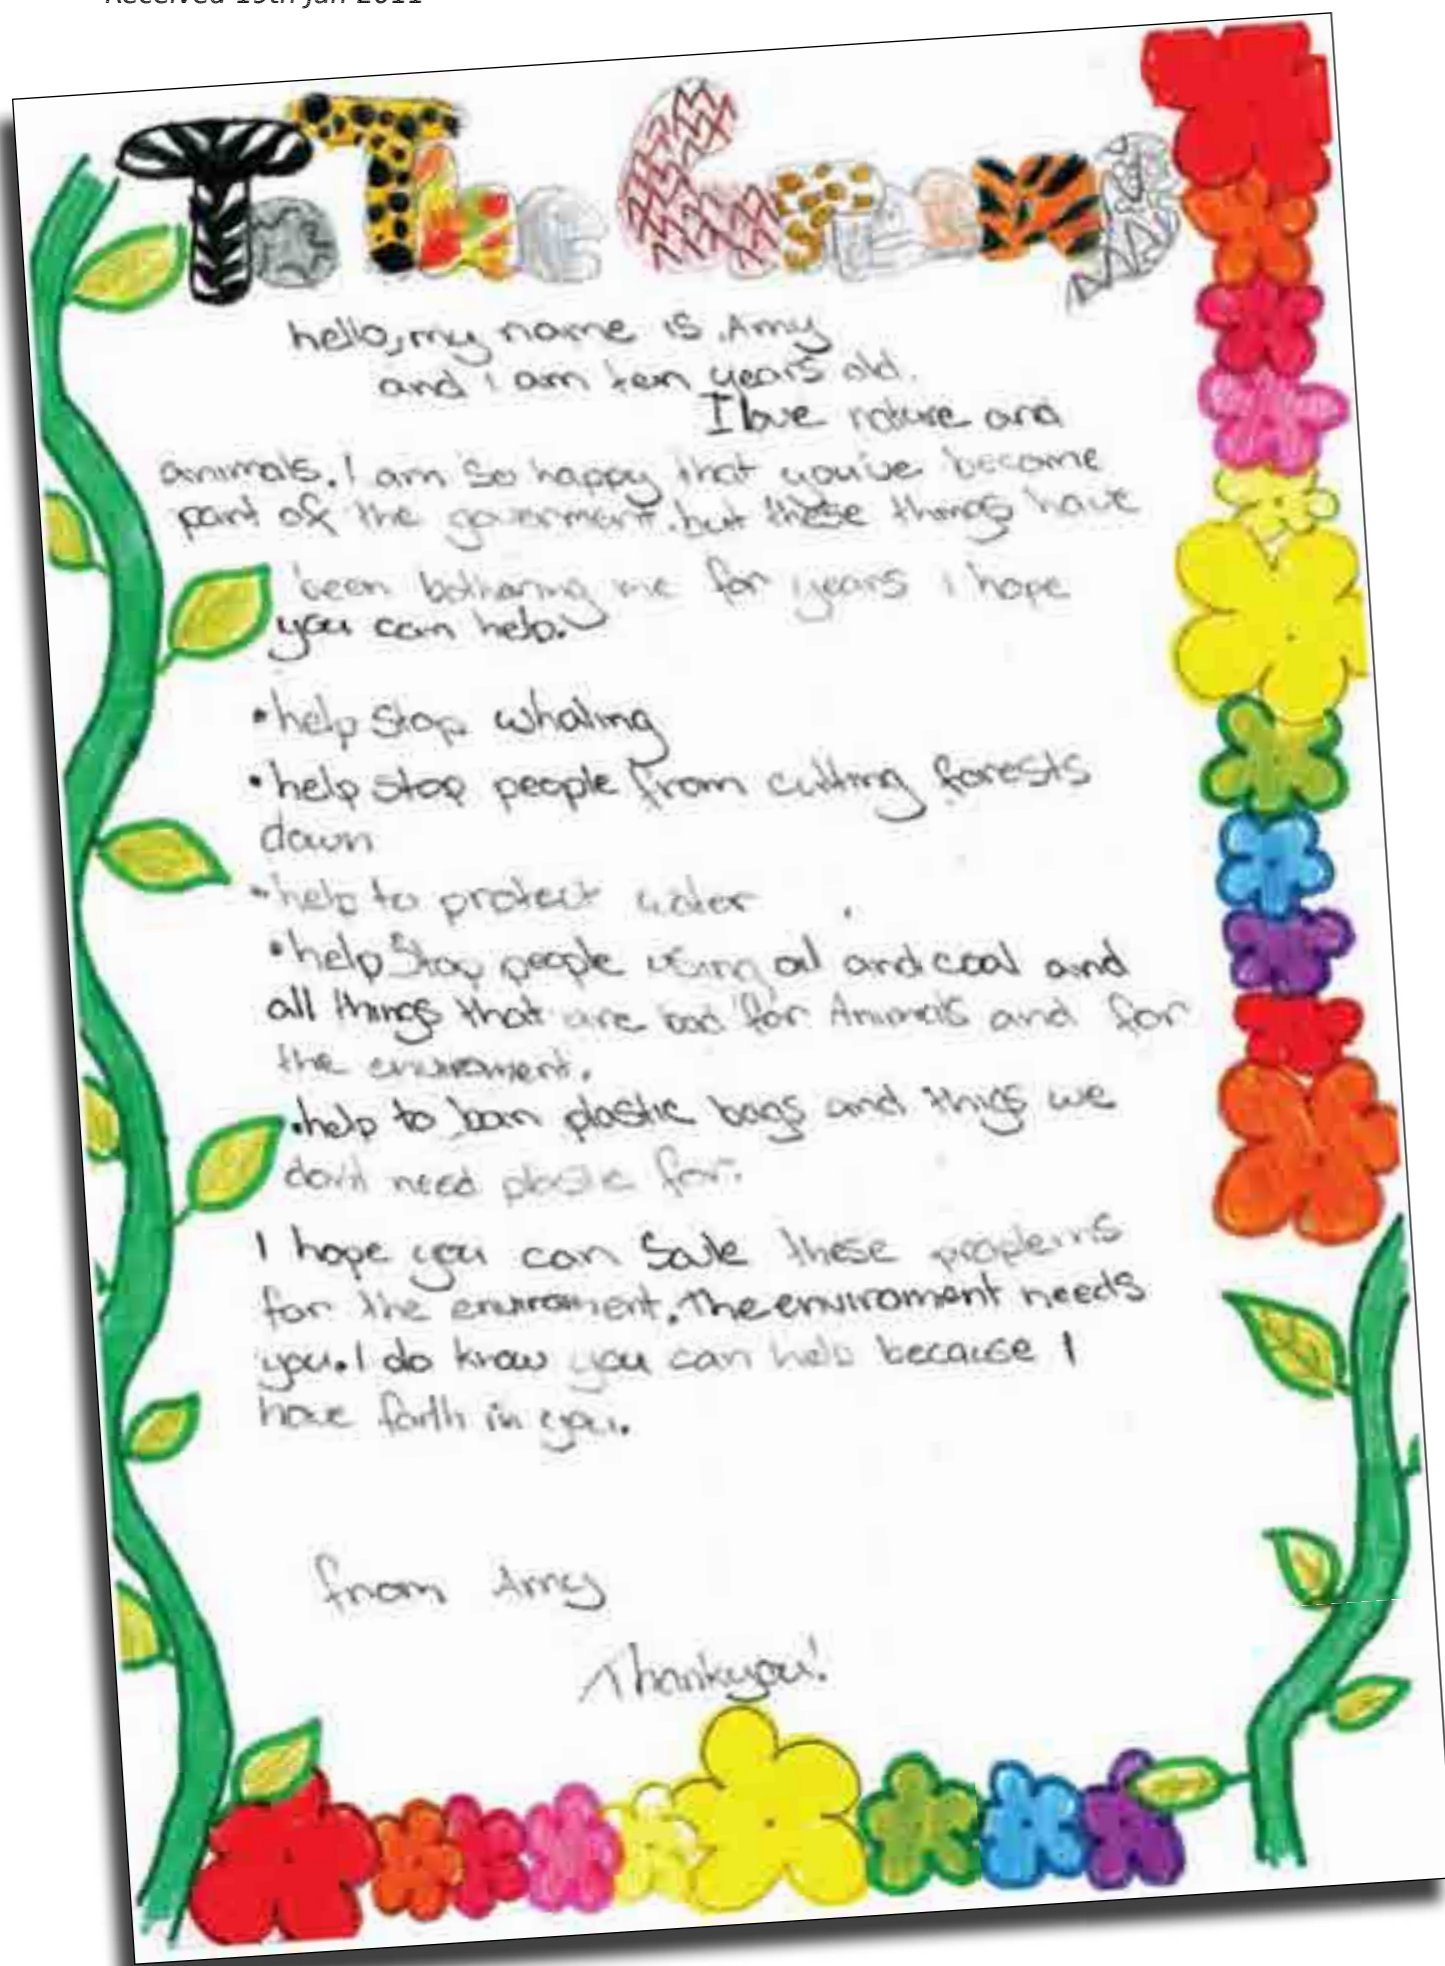 Received 19th Jan 2011
To The Greens
hello, my name is Amy
and i am ten years old.
I love nature and
animals. I am so happy that you've become
part of the goverment. but these things have
been bothering me for years i hope
you can help.
• help stop whaling
• help stop people from cutting forests
down
• help to protect water
• help Stop people using oil and coal and
all things that are bad for Animals and for
the enviroment.
• help to ban plastic bags and thigs we
don't need plastic for.
I hope you can Save these proplems
for the enviroment. The enviroment needs
you. I do know you can help because I
have faith in you.
from Amy
Thankyou!